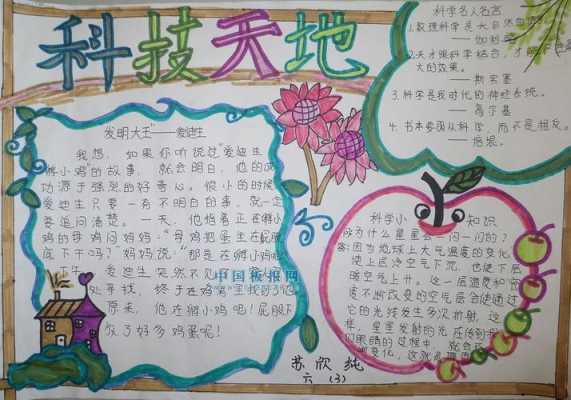 科技天地
发明大王"——爱迪生
我想，如果你听说过"爱迪生
孵小鸡"的故事，就会明白，他的成
功源于强烈的好奇心。很小的时候
爱迪生只要一有不明白的事，就一定
要追问清楚。一天，他指着正在孵小
鸡的母鸡问妈妈："母鸡把蛋坐在屁股
底下干吗？"妈妈说："那是在孵小鸡呢
爱迪生突然不见了
处寻找，终于在鸡窝里找到了他
原来，他在孵小鸡呢！屁股下
放了好多鸡蛋呢！
中国板报网
苏欣纯
六（3）
科学名人名言
1.数理科学是大自然
——伽利略
2.天才跟科学结合，才能
大的效果。
——斯宾塞
3.科学是我时代的神经系统。
——高尔基
4.书本要跟从科学，而不是相反。
——培根。
科学小知识
为什么星星会一闪一闪的？
答：因为地球上大气温度的变化
使上层冷空气下沉，也使下层
暖空气上升。这一层温度和密
度不断改变的空气层会使通过
它的光线发生多次折射，这
样，星星发射的光在传到
们眼睛的过程中，就会
变化，这就